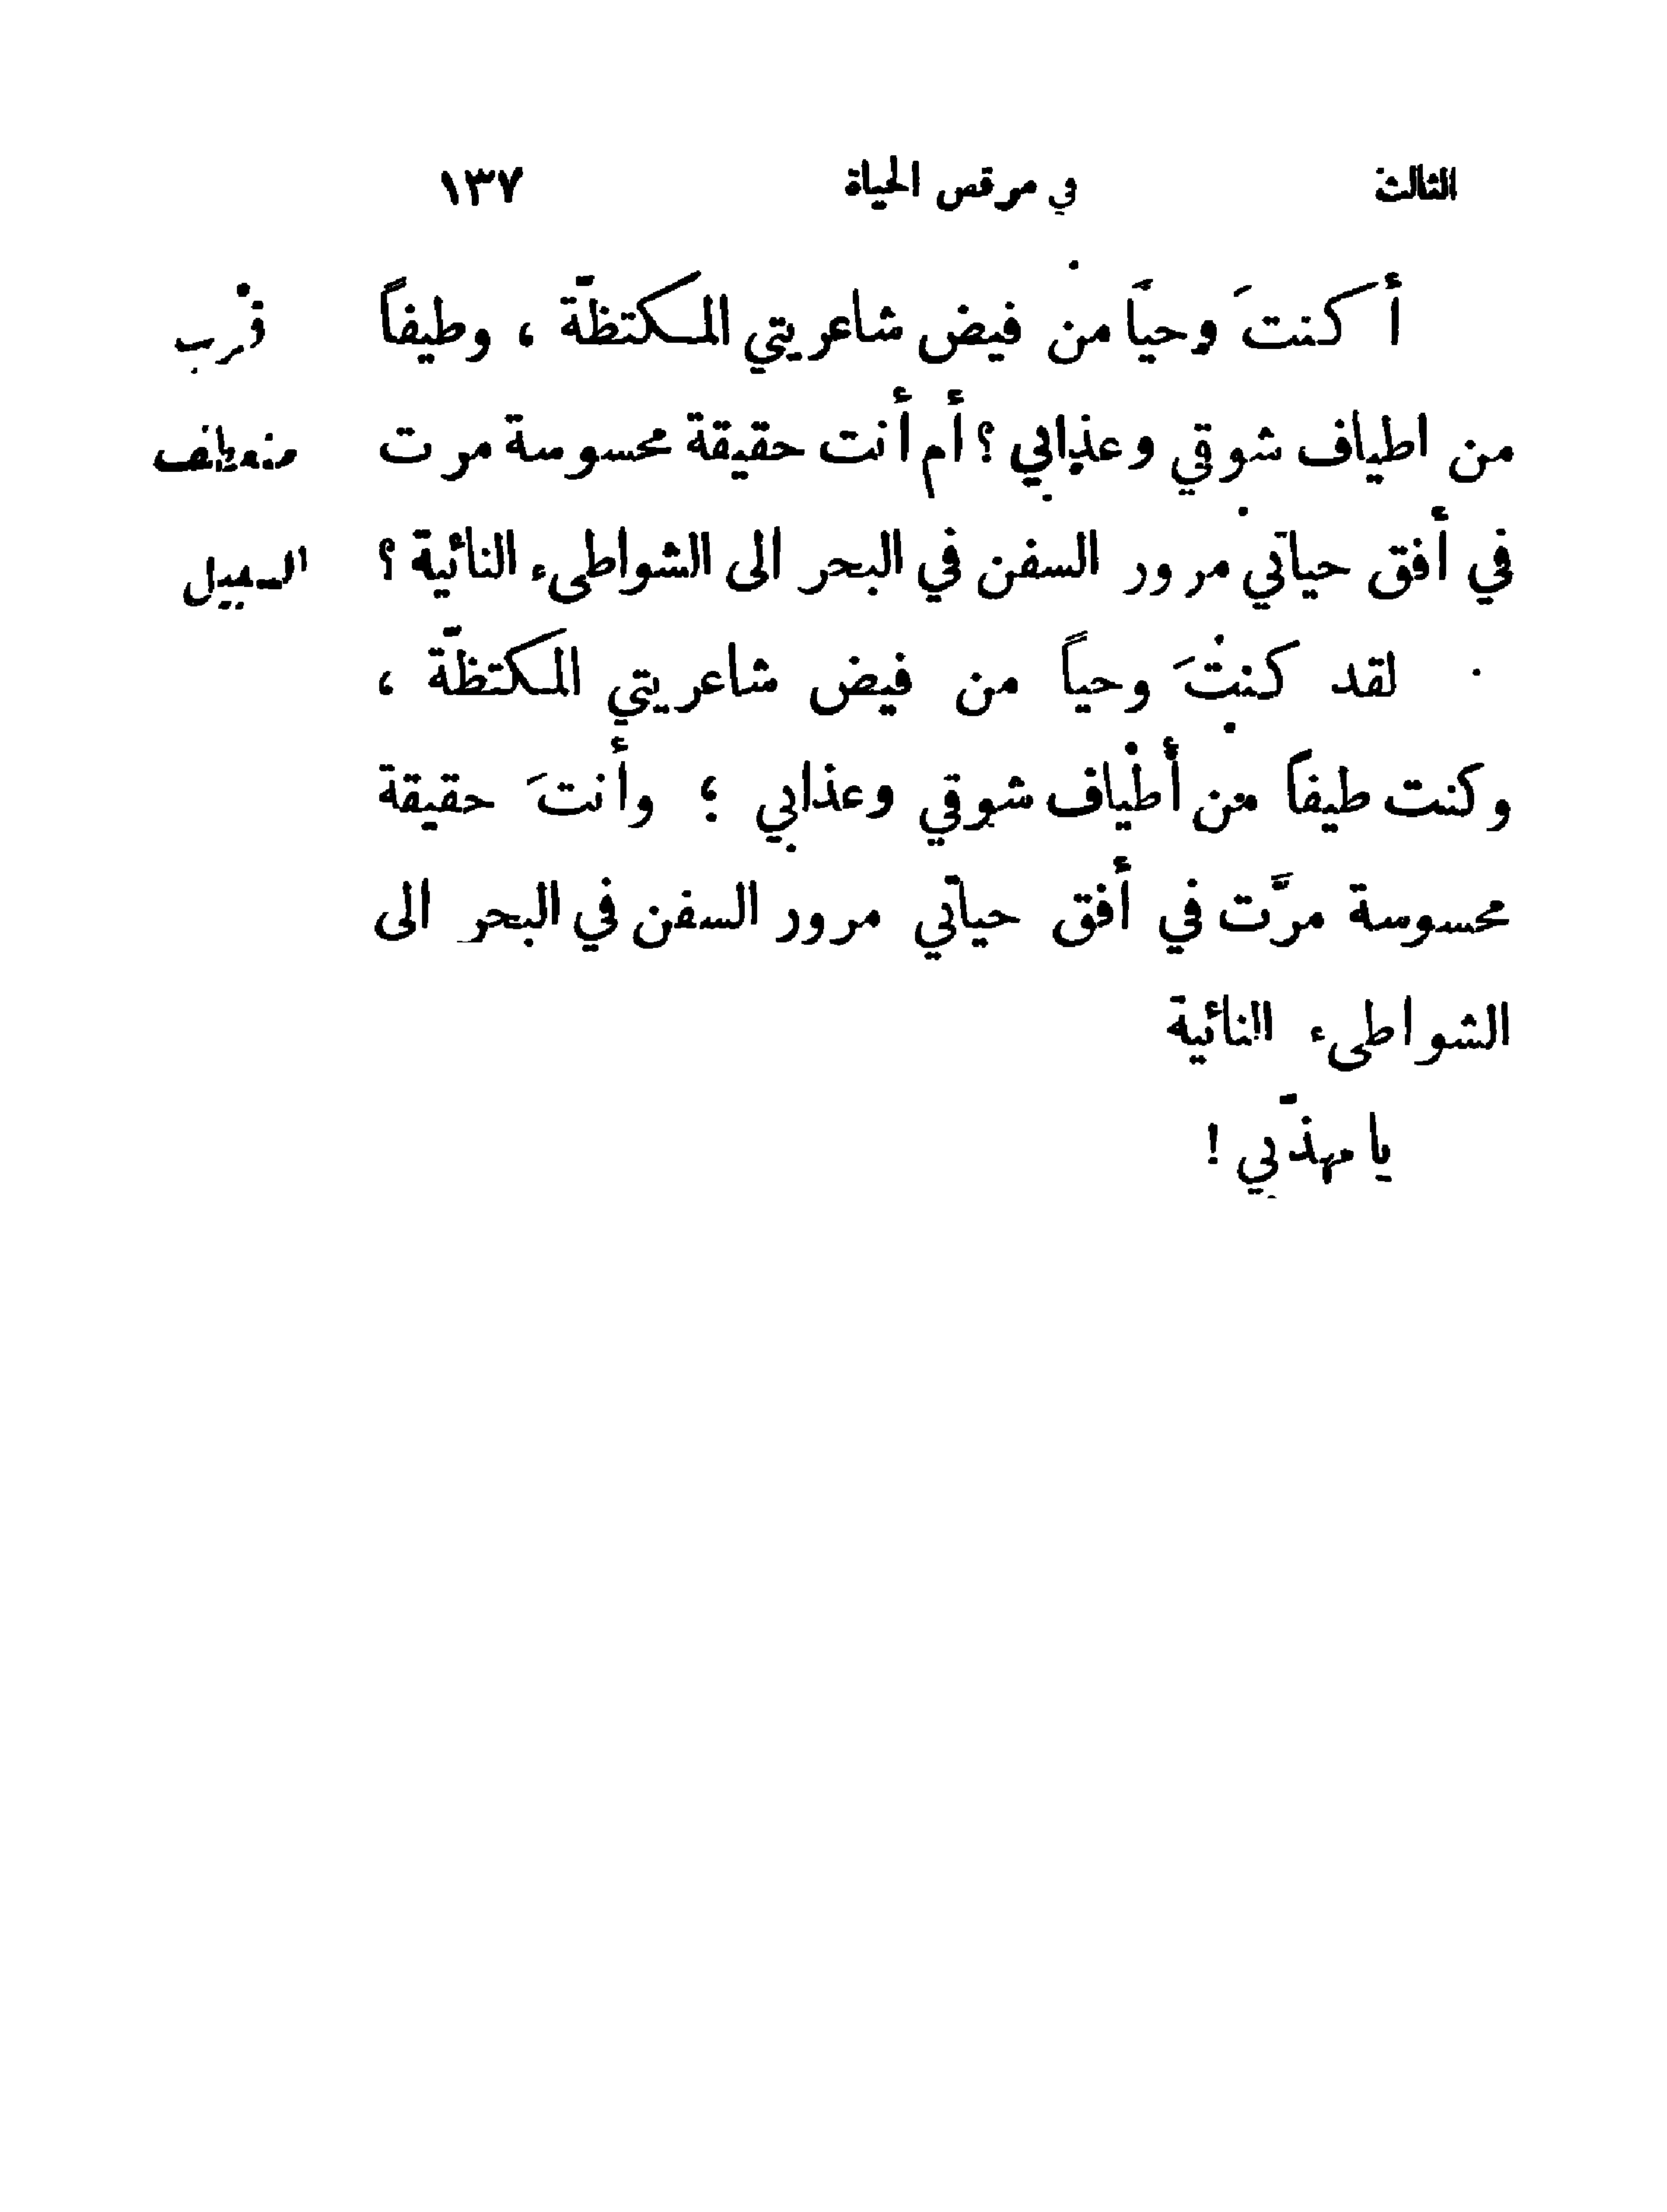 الثالث في مرقص الحياة ١٣٧
أكنتَ وحيًا من فيض شاعريتي المكتظّة ، وطيفاً
من اطياف شوقي وعذابي ؟ أم أنت حقيقة محسوسة مرت
في أفق حياتي مرور السفن في البحر الى الشواطىء النائية ؟
لقد كنتَ وحياً من فيض شاعريتي المكتظّة ،
وكنت طيفاً من أطياف شوقي وعذابي ؛ وأنتَ حقيقة
محسوسة مرَّت في أفق حياتي مرور السفن في البحر الى
الشواطىء النائية
يا مهذّبي !
قرب
منعطف
السبيل